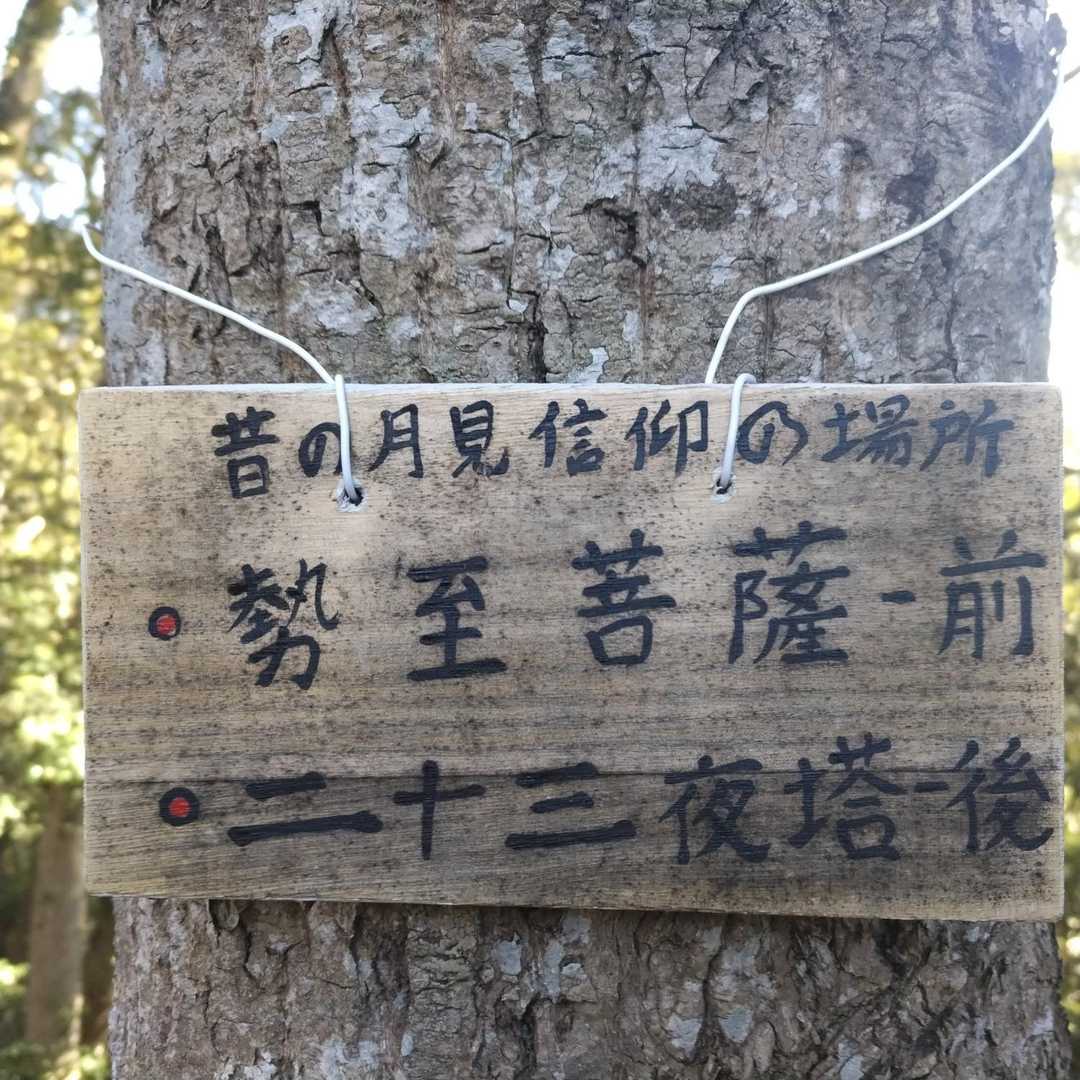 昔の月見信仰の場所
勢至菩薩-前
二十三夜塔-後